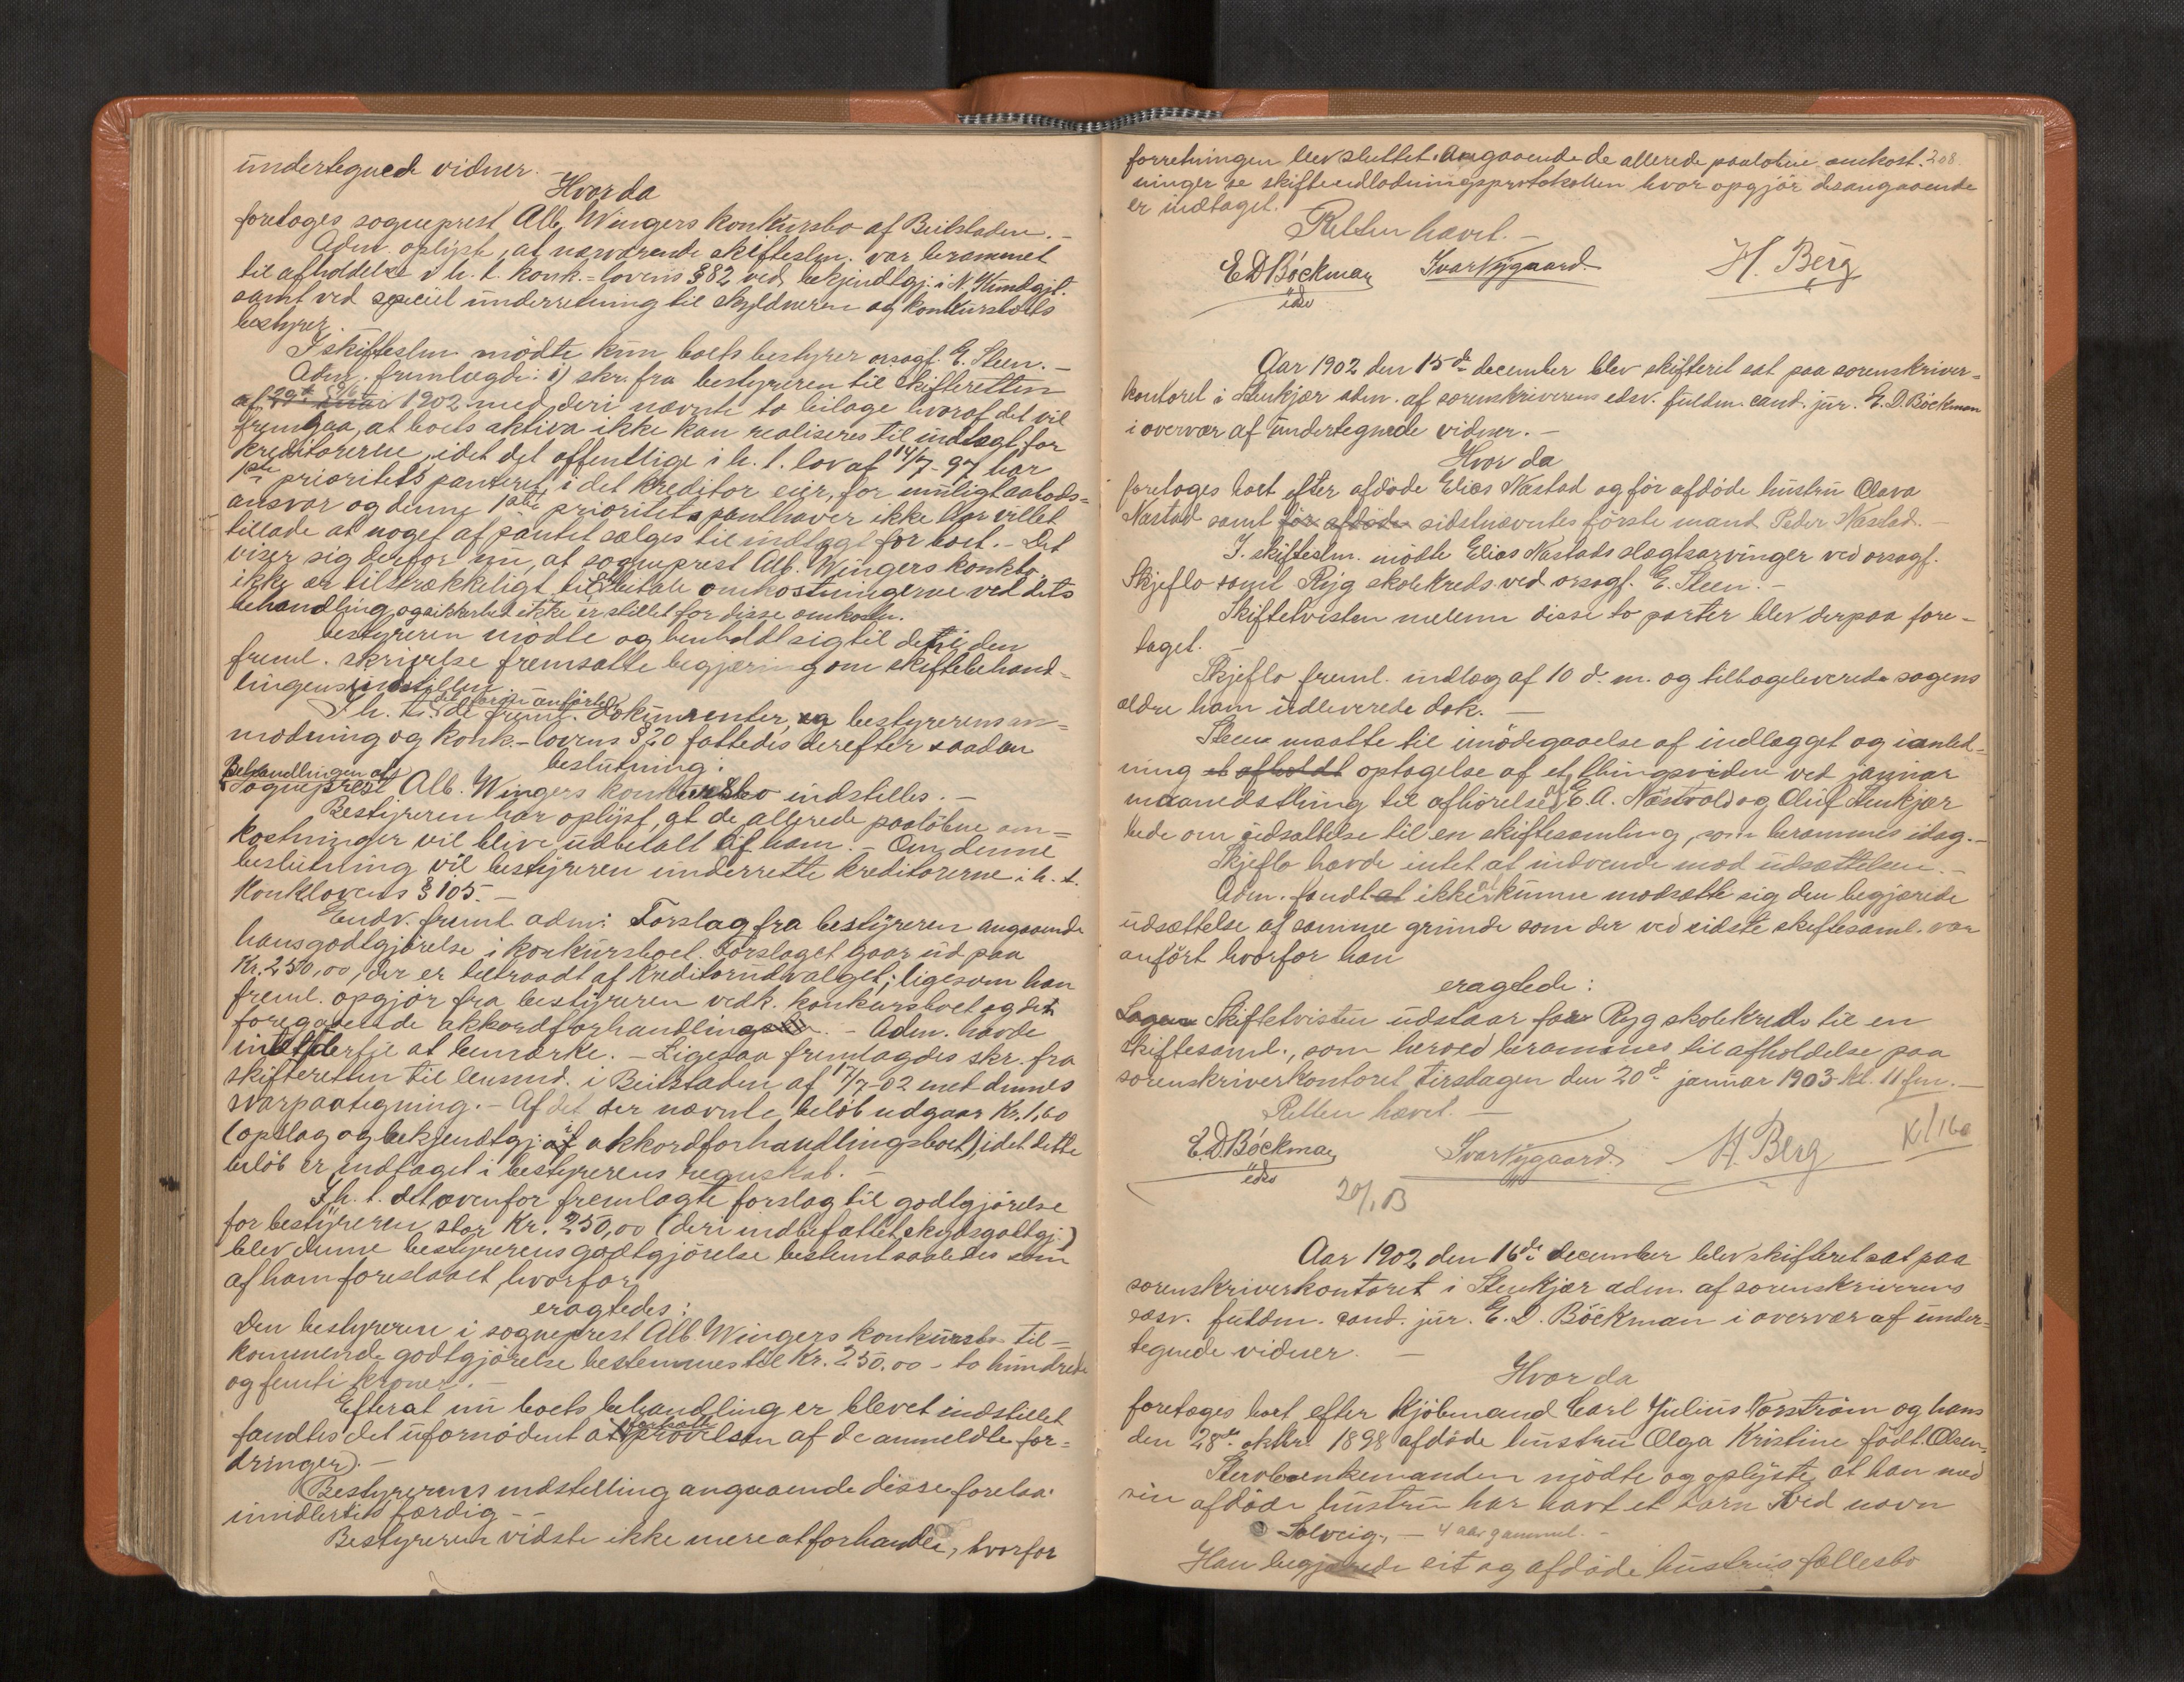 undertegnede vidner.
Hvor da
foretages sogneprest Alb. Wingers konkursbo af Beitstaden. –
Adm. oplyste, at nærværende skiftesln. var berammet
til afholdelse i h. t. konk.-lovens § 82 ved bekjendtgj. i N. Kundgjt.
samt ved speciel underretning til skyldneren og konkursboets
bestyrer.
I skiftesln. mødte kun boets bestyrer orsagf. E. Steen. –
Adm. fremlagde: 1) skr. fra bestyreren til skifteretten
af 1902 med deri nævnte to bilage hvoraf det vil
fremgaa, at boets aktiva ikke kan realiseres til indtægt for
kreditorerne, idet det offentlige i h. t. lov af 14/7-97 har
1ste prioritets panteret i det kreditor eier, for
ansvar og denne 1ste prioritets panthaver ikke har villet
tillade at noget af pantet sælges til indtægt for boet. – Det
viser sig derfor nu, at sogneprest Alb. Wingers konkbo
ikke er tilstrækkeligt til at betale omkostningerne ved dets
behandling, og sikkerhed ikke er stillet for disse omkostn.
bestyreren mødte og henholdt sig til det i den
freml. skrivelse fremsatte begjæring om skiftebehand-
lingens indstillen
I h. t. de freml. dokumenter, og bestyrerens an-
modning og konk.-lovens § 20 fattedes derefter saadan
beslutning:
Behandlingen af
Sogneprest Alb. Wingers konkursbo indstilles. –
Bestyreren har oplyst, at de allerede paaløbne om-
kostninger vil blive udbetalt af ham. – Om denne
beslutning vil bestyreren underrette kreditorerne i h. t.
Konklovens § 105. –
Endv. freml. adm: Forslag fra bestyreren angaaende
hans godtgjörelse i konkursboet. Forslaget gaar ud paa
Kr. 250,00, der er tiltraadt af Kreditorudvalget; ligesom han
freml. opgjör fra bestyreren vedk. konkursboet og det
foregaaende akkordforhandlings – Adm. havde
intet dertil at bemærke. – Ligesaa fremlagdes skr. fra
skifteretten til lensmd. i Beitstaden af 17/7-02 med dennes
svarpaategning. – Af det der nævnte beløb udgaar Kr. 1,60
(opslag og bekjendtgj. af akkordforhandlingsboet), idet dette
beløb er indtaget i bestyrerens regnskab. –
I h. t. det ovenfor fremlagte forslag til godtgjörelse
for bestyreren, stor Kr. 250,00 (deri indbefattet skydsgodtgj.)
blev denne bestyrerens godtgjörelse bestemt saaledes som
af ham foreslaaet, hvorfor
eragtedes:
Den bestyreren i sogneprest Alb. Wingers konkursbo til-
kommende godtgjörelse bestemmes til Kr. 250.00 – to hundrede
og femti kroner. –
Efterat nu boets behandling er blevet indstillet
fandtes det ufornödent at fortsætte prövelsen af de anmeldte for-
dringer). –
Bestyrerens indstilling angaaende disse forelaa
imidlertid færdig –
Bestyreren vidste ikke mere at forhandle, hvorfor
forretningen blev sluttet. Angaaende de allerede paaløbne omkost- 208
ninger se skifteudlodningsprotokollen hvor opgjör desangaaende
er indtaget.
Retten hævet. –
E D Böckman Ivar Nygaard H. Berg
eds
Aar 1902 den 15de december blev skifteret sat paa sorenskriver-
kontoret i Stenkjær adm. af sorenskriverens edsv. fuldm. cand. jur. E. D. Böckman
i overvær af undertegnede vidner. –
Hvor da
foretages boet efter afdöde Elias Nastad og för afdöde hustru Olava
Nastad samt för afdöde sidstnævntes förste mand Peder Nastad. –
I skiftesln. mödte Elias Nastads slegtsarvinger ved orsagf.
Skjeflo samt Ryg skolekreds ved orsagf. E. Steen. –
Skiftetvisten mellem disse to parter blev derpaa fore-
taget.
Skjeflo freml. indlæg af 10 d. m. og tilbageleverede sagens
ældre ham udleverede dok. –
Steen maatte til imödegaaelse af indlægget og i anled-
ning et afholdt optagelse af et thingsvidne ved januar
maanedsthing til afhörelse af E. A. Næstvold og Oluf Stenkjær
bede om udsættelse til en skiftesamling, som berammes idag. –
Skjeflo havde intet at indvende mod udsættelsen. –
Adm. fandt at ikke at kunne modsætte sig den begjærede
udsættelse af samme grunde som der ved sidste skiftesaml. var
anfört hvorfor han
eragtede:
Sagen Skiftetvisten udstaar for Ryg skolekreds til en
skiftesaml., som herved berammes til afholdelse paa
sorenskriverkontoret tirsdagen den 20de januar 1903 kl. 11 fm. –
Retten hævet. –
E. D. Böckman Ivar Nygaard. H. Berg K/160
eds
20/1 03
Aar 1902 den 16de december blev skifteret sat paa
sorenskriverkontoret i Stenkjær adm. af sorenskriverens
edsv. fuldm. cand. jur. E. D. Böckman i overvær af under-
tegnede vidner. –
Hvor da
foretages boet efter Kjöbmand Carl Julius Norström og hans
den 28de oktbr. 1898 afdöde hustru Olga Kristine född. Olsen.
Stervboenkemanden mödte og oplyste, at han med
sin afdöde hustru har havt et barn ved navn
Solveig, – 4 aar gammel. –
Han begjærede sit og afdöde hustrus fællesbo